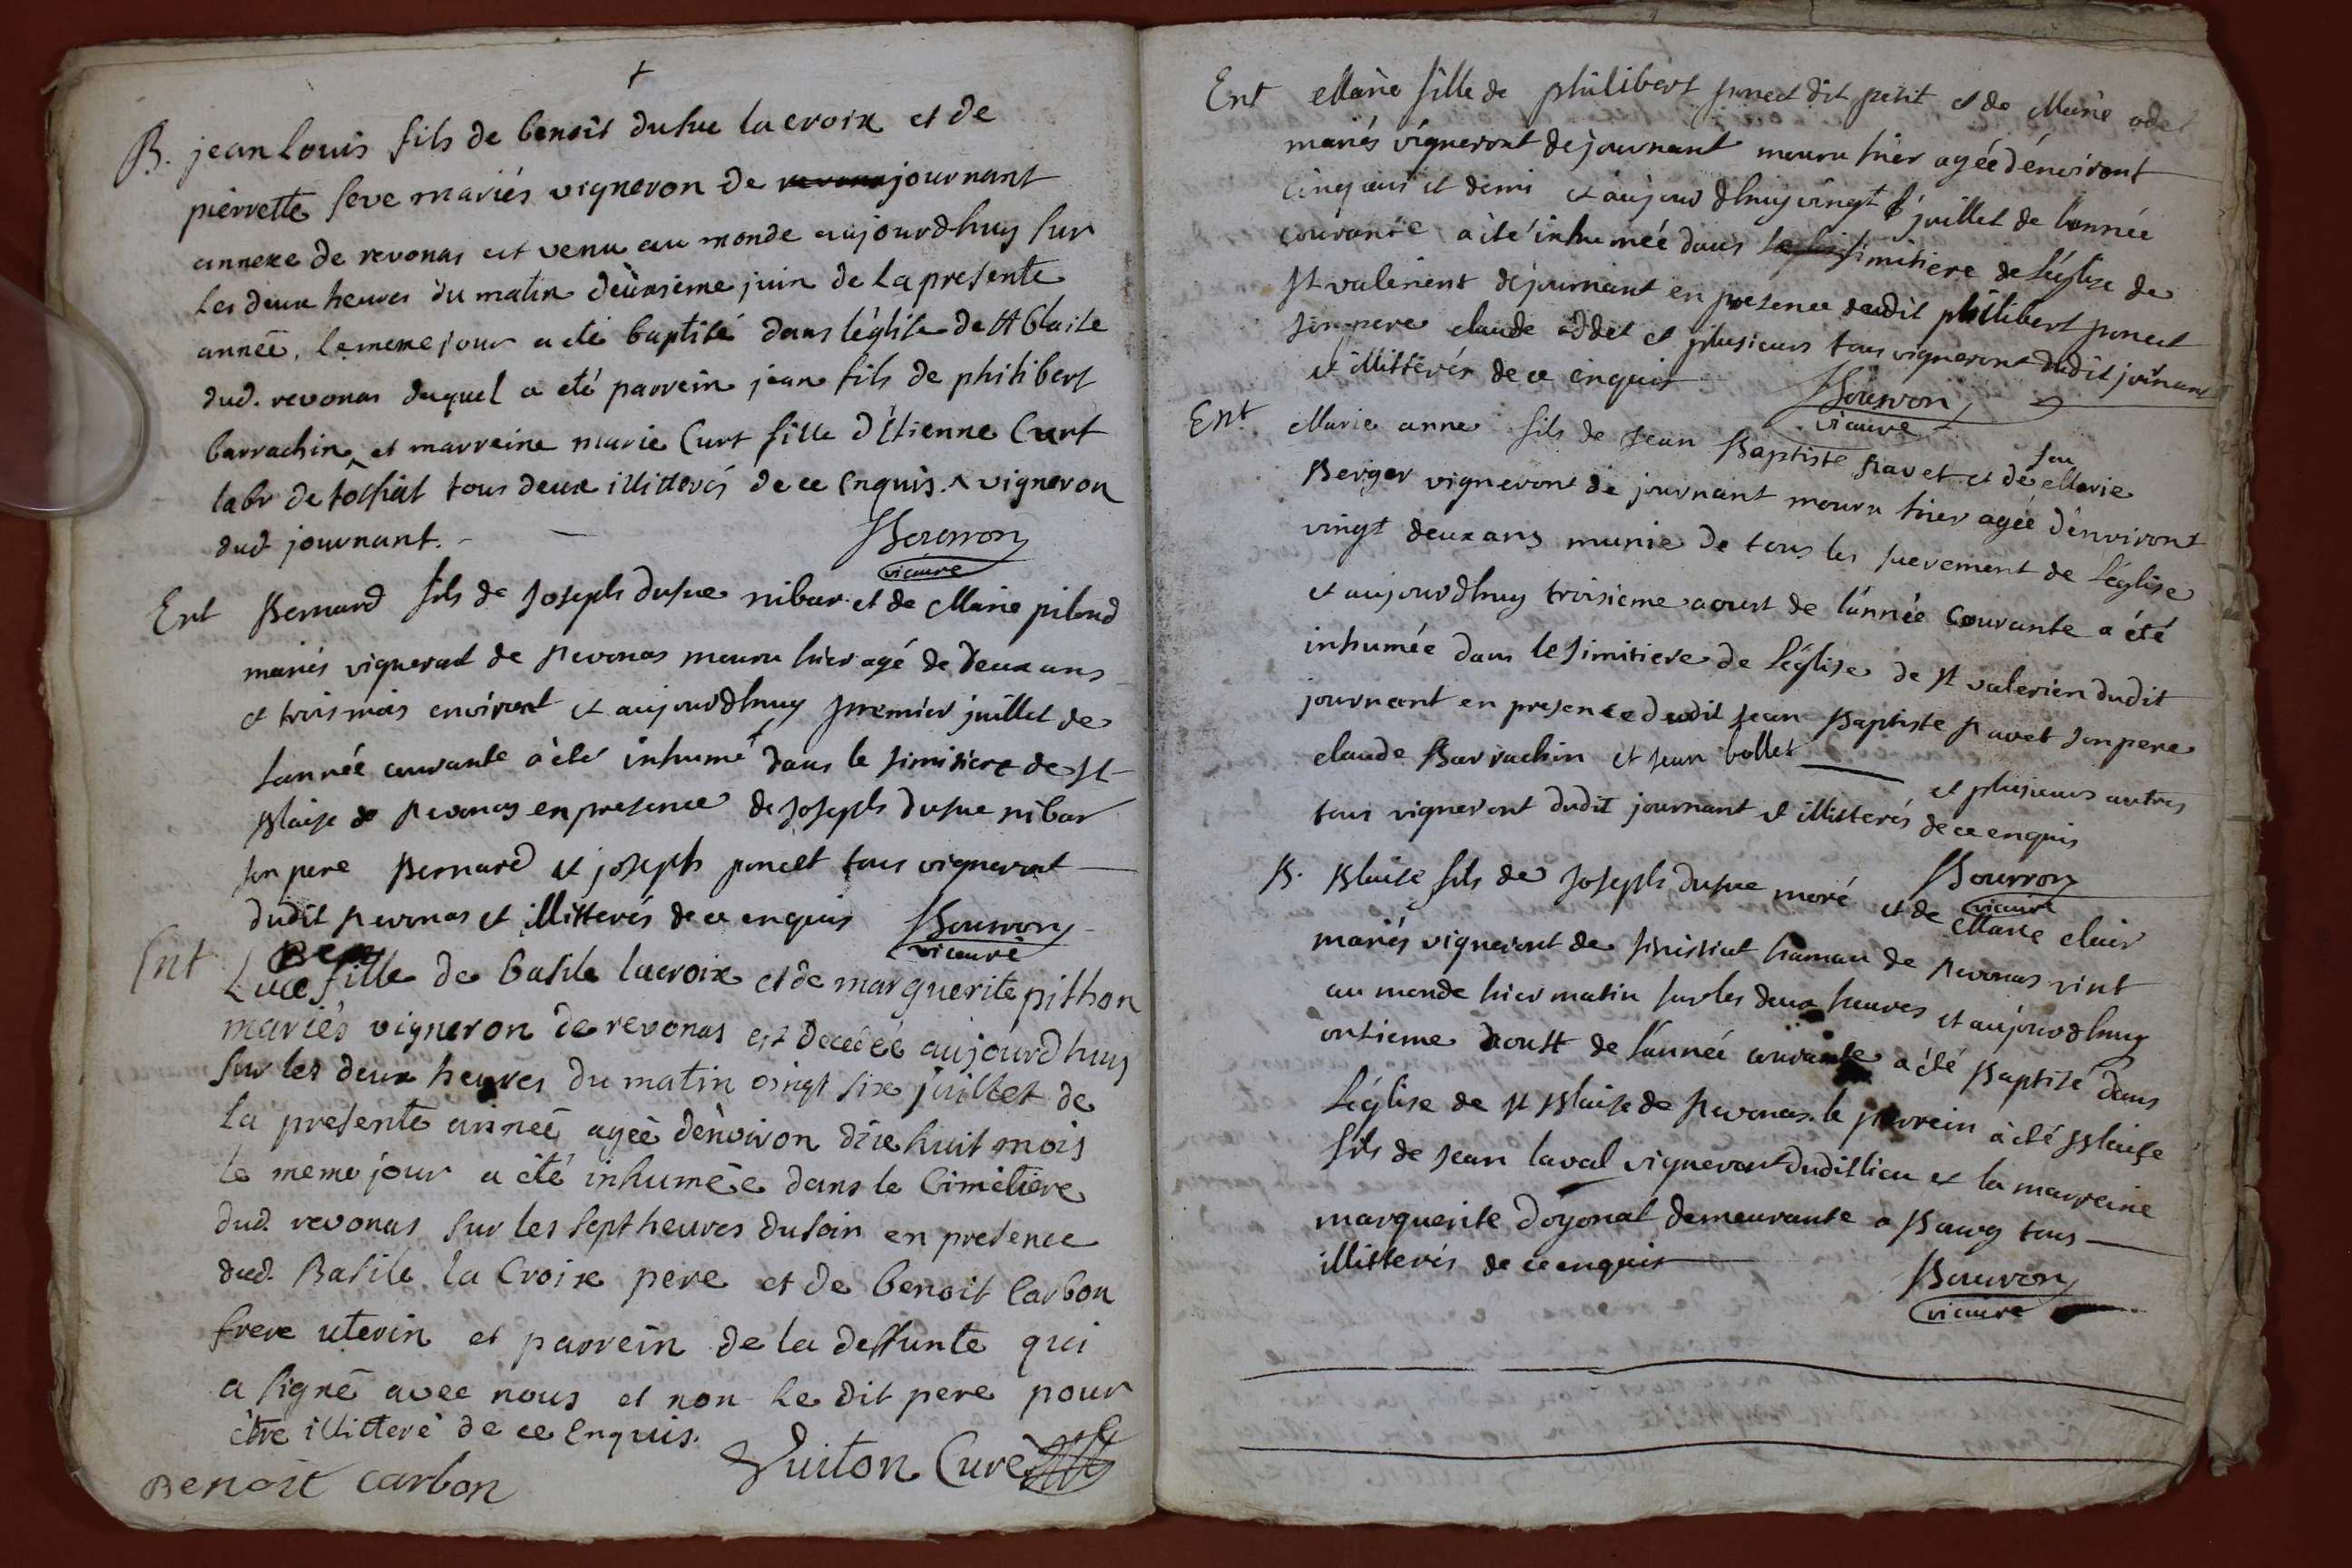 B. jean louis fils de benoit dusue lacroix et de
pierrette seve mariés vigneron de journant
annexe de revonas est venu au monde aujourdhuy sur
les deux heures du matin deuxieme juin de la presente
année, le meme jour a eté baptisé dans l'église de st blaise
dud. revonas duquel a eté parrein jean fils de philibert
barrachin ^ et marreine marie Curt fille d'Etienne Curt
labr de tossiat tous deux illitterés de ce enquis. ^ vigneron
dud journant.
Bouvron
vicaire
Ent Bernard fils de Joseph dusue nibar et de Marie pilond
mariés vigneront de Revonas mouru hier agé de deux ans
et trois mois environt et aujourdhuy premier juillet de
lannée courante a été inhumé dans le simitiere de st
Blaise de Revonas en presence de Joseph dusue nibar
son pere Bernard et joseph poncet tous vigneront
dudit Revonas et illitterés de ce enquis Bouvron
vicaire
Ent Luce fille de basile lacroix et de marguerite pithon
mariés vigneron de revonas est decédée aujourdhuy
sur les deux heures du matin vingt six juillet de
la presente année agée d'environ dix huit mois
le meme jour a été inhumée dans le Cimetiere
dud. revonas sur les sept heures du soir en presence
dud. Basile la Croix pere et de benoit Carbon
frere uterin et parrein de la deffunte qui
a signé avec nous et non le dit pere pour
être illitteré de ce Enquis.
Benoit carbon
Guiton Curé
Ent Marie fille de philibert poncet dit petit et de Marie odet
mariés vigneront de journant mouru hier agée d'environt
cinq ans et demi et aujourdhuy vingt juillet de lannée
courante a été inhumée dans simitiere de l'église de
st valerient de journant en presence dudit philibert poncet
son pere claude oddet et plusieurs tous vigneront dudit journant
et illitterés de ce enquis
Bouvron
vicaire
Ent Marie anne fils de Jean Baptiste Ravet et de feu Marie
Berger vigneront de journant mouru hier agée d'environt
vingt deux ans munie de tous les sacrement de l'église
et aujourdhuy troisieme aoust de l'année courante a été
inhumée dans le simitiere de l'église de st valerien dudit
journant en presence dudit Jean Baptiste Ravet son pere
claude Barrachin et Jean bollet et plusieurs autres
tous vigneront dudit journant et illitterés de ce enquis
Bouvron
vicaire
B. Blaise fils de Joseph dusue moré et de Marie clair
mariés vigneront de hamau de Revonas vint
au monde hier matin sur les deux heures et aujourdhuy
onsieme doust de lannée courante a été Baptisé dans
l'église de st Blaise de Revonas. le parrein a été Blaise
fils de Jean laval vigneront dudit lieu et la marreine
marguerite doyonat demeurante a Bourg tous
illitterés de ce enquis
Bouvron
vicaire